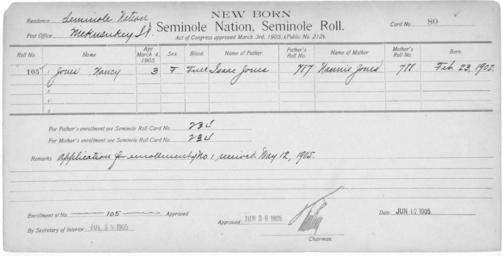 NEW BORN
Residence Seminole Nation
Post Office Mekusukey I.T.
Seminole Nation, Seminole Roll.
Card No. 80
Act of Congress approved March 3rd, 1905, (Public No. 212).
Roll No. Name Age March 4, 1905 Sex Blood Name of Father Father's Roll No. Name of Mother Mother's Roll No. Born
105 1 Jones Nancy 3 F Full Isaac Jones 787 Nannie Jones 788 Feb. 23, 1902.
For Father's enrollment see Seminole Roll Card No. 234
For Mother's enrollment see Seminole Roll Card No. 234
Remarks Application for enrollment of No. 1 received May 12, 1905.
Enrollment of No. 105 Approved
By Secretary of Interior 1905
Approved 1905
Chairman.
Date JUN 17 1905